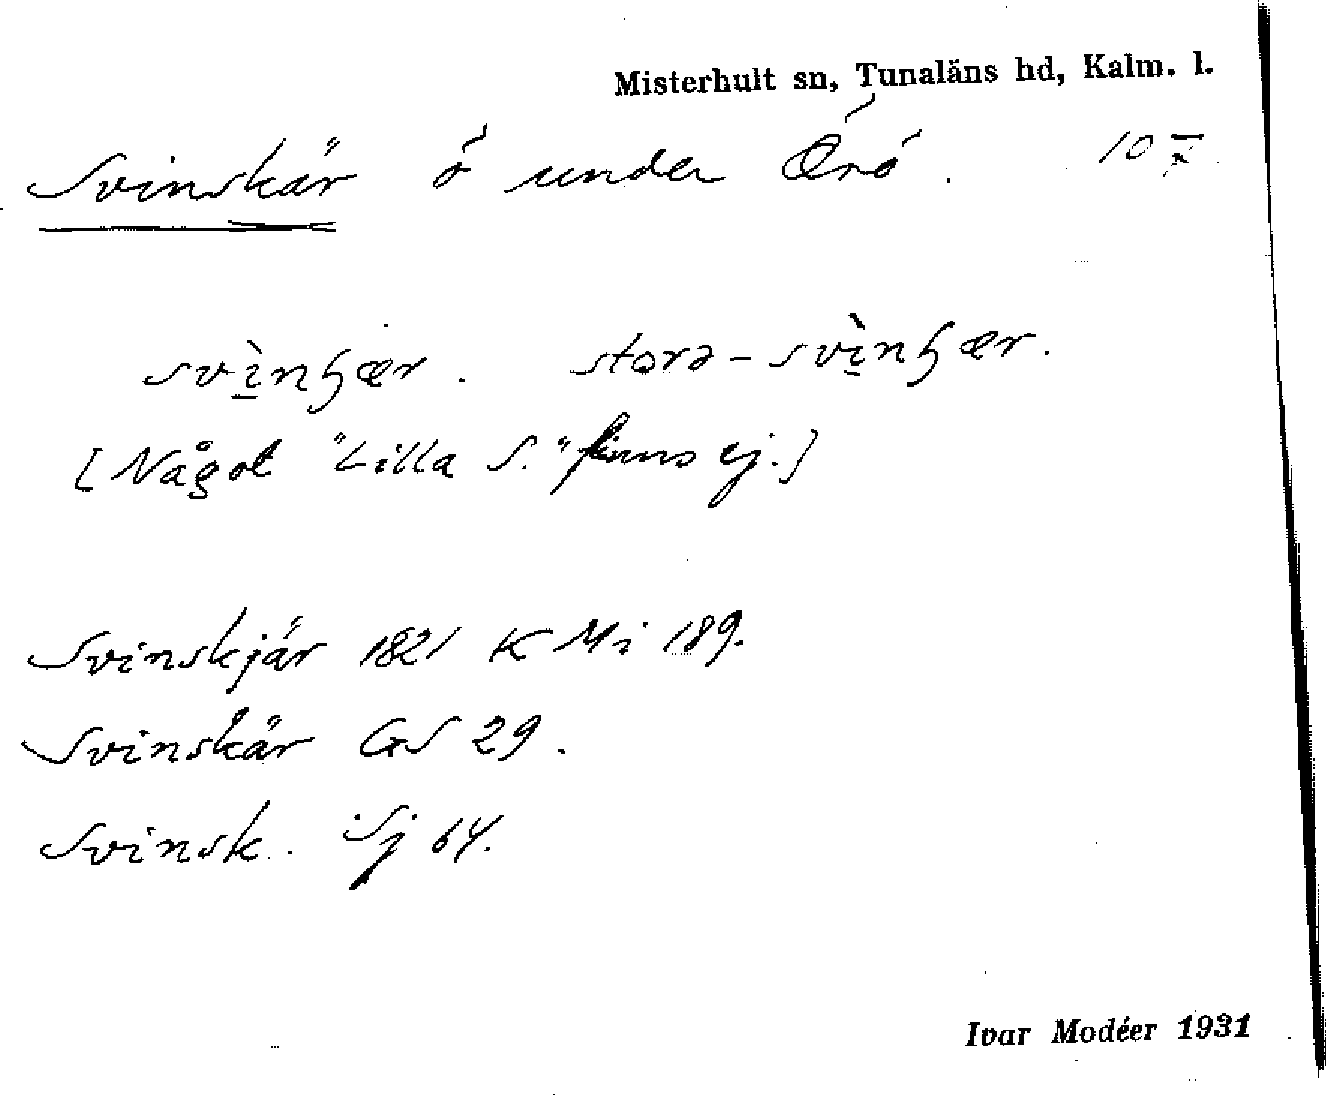 Misterhult sn, Tunaläns hd, Kalm. l.
Svinskär ö under Örö. 10
svìnꞕær. stora-svìnꞕær.
[Något "Lilla S." finns ej.]
Svinskjär 1821 K Mi 189.
Svinskär GS 29.
Svinsk. Sj 64.
Ivar Modéer 1931